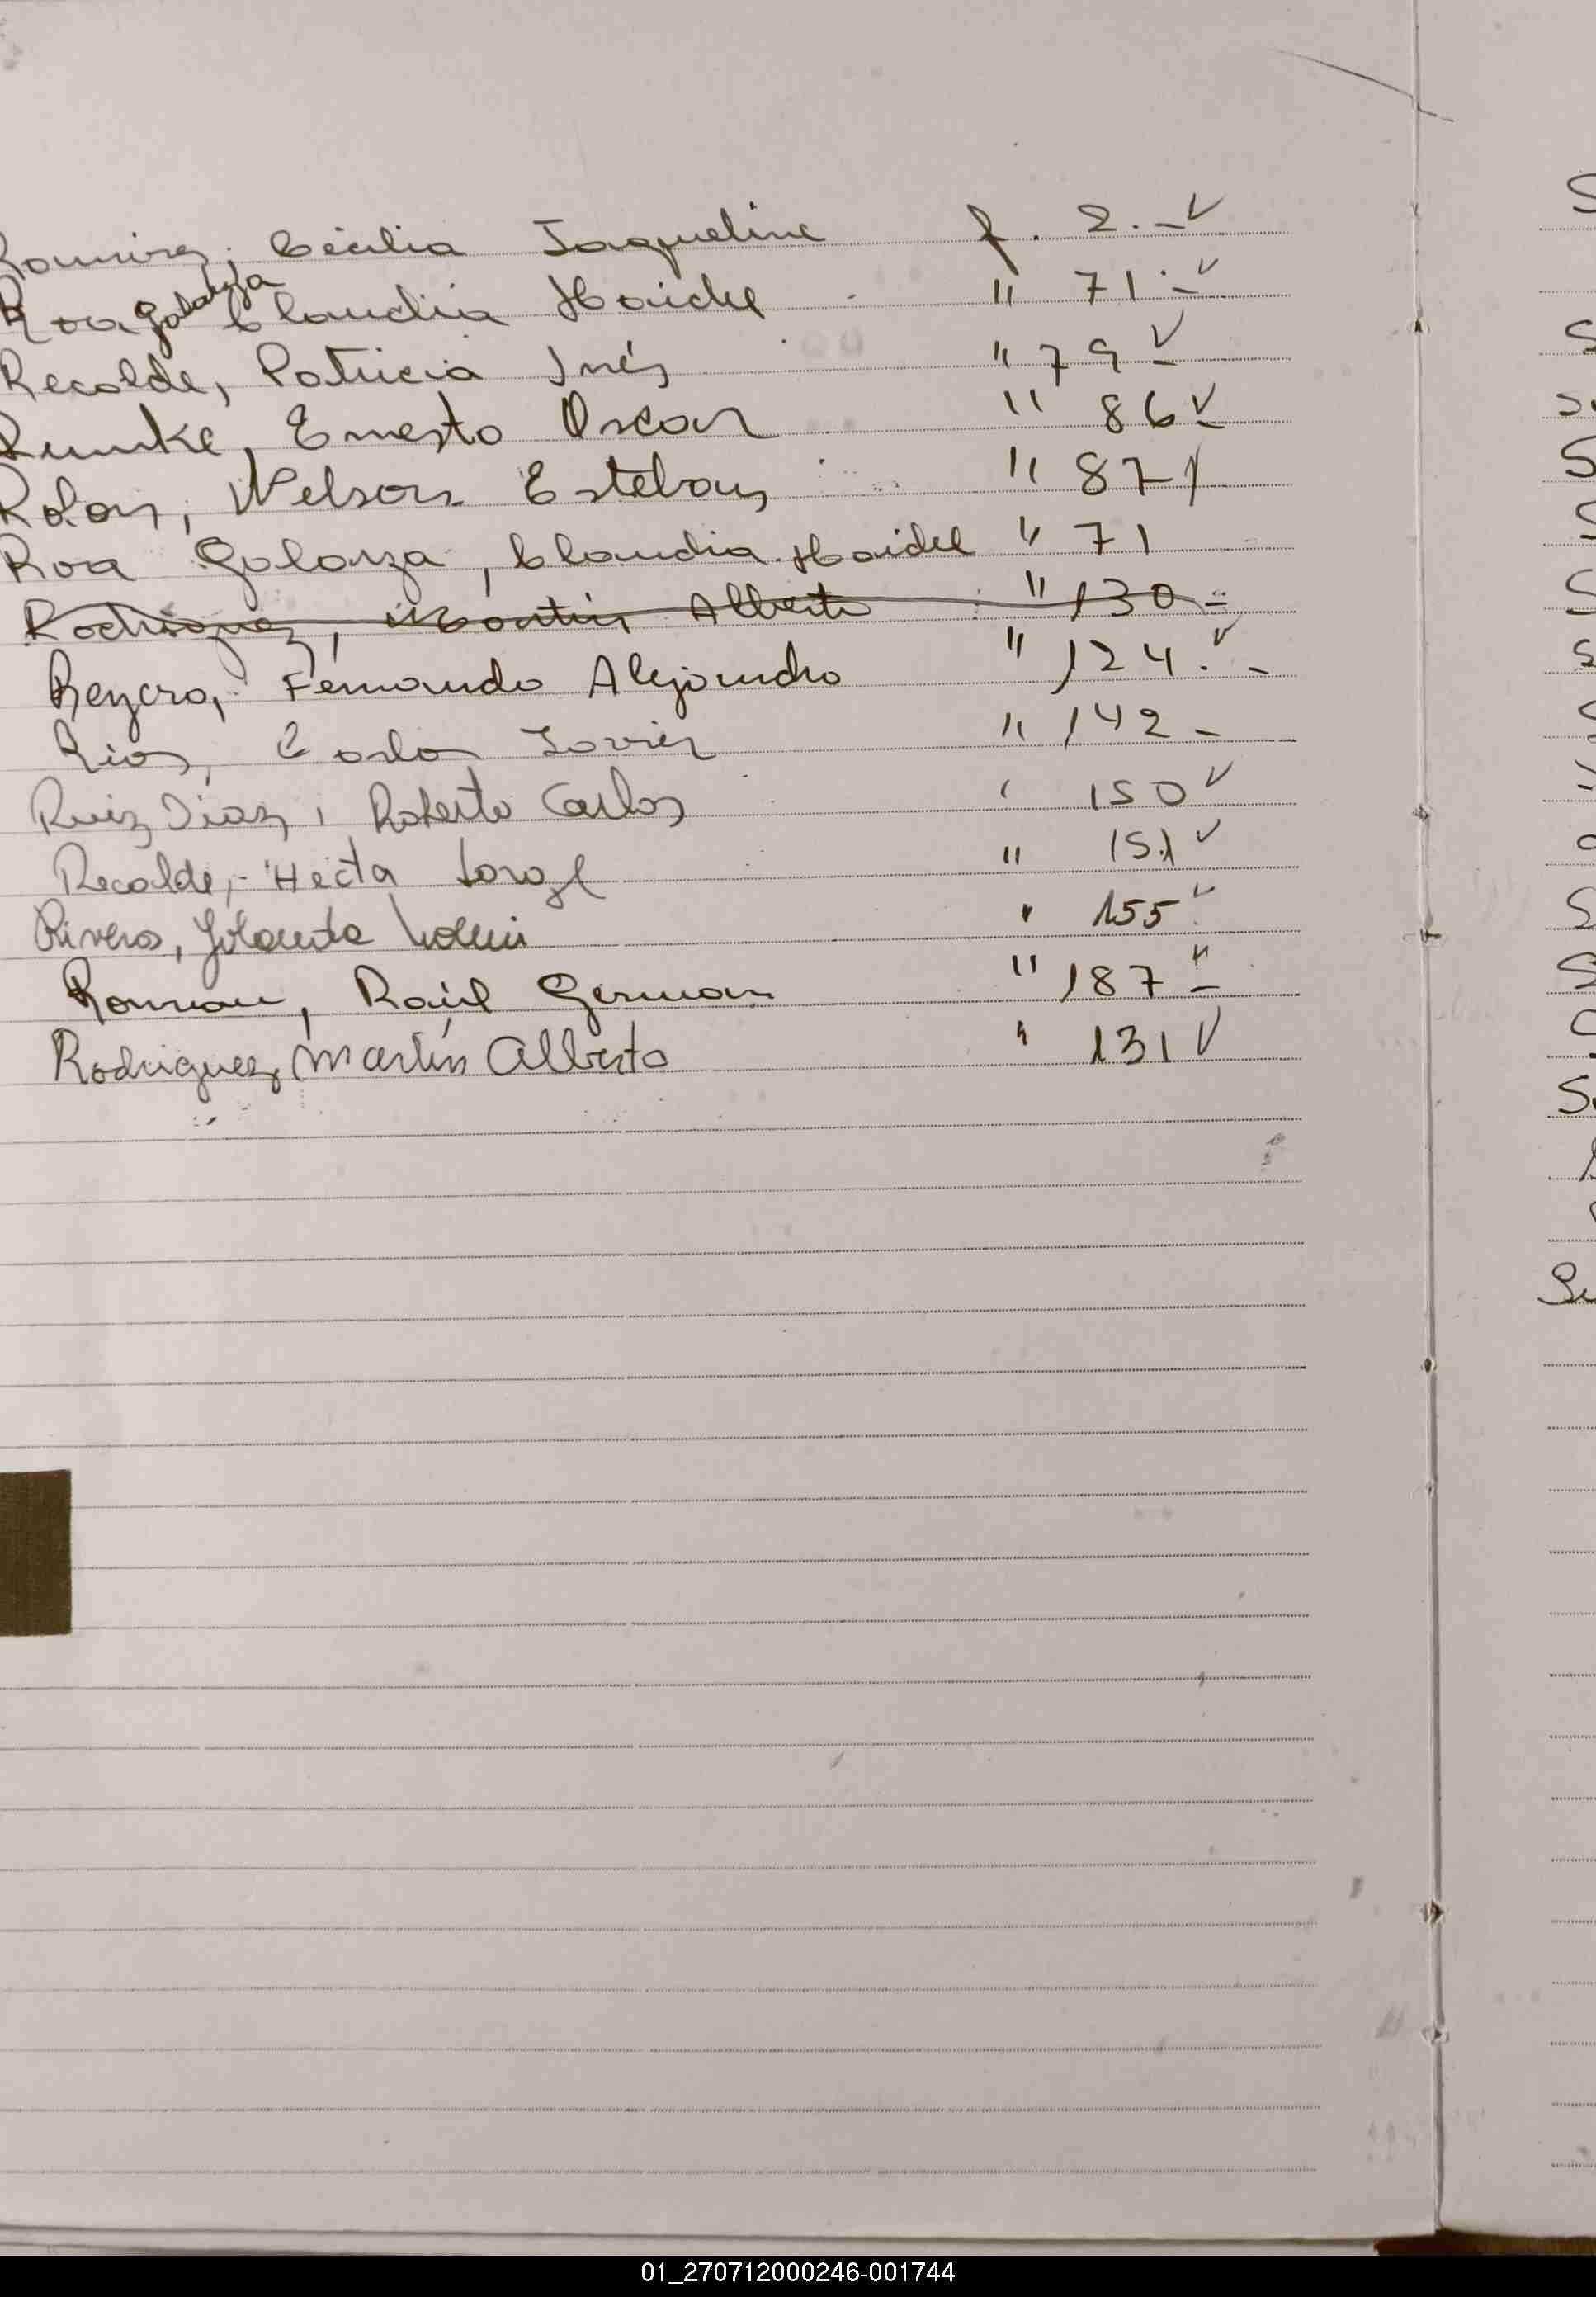 Ramirez, Cecilia Jaqueline f. 2.-✓
Roa Galarza Claudia Haidee " 71.-✓
Recalde, Patricia Inés " 79 ✓
Rumke, Ernesto Oscar " 86 ✓
Rolon, Nelson Esteban " 87
Roa Galarza, Claudia Haidee " 71
Rodriguez, Martin Alberto " 130=
Reyero, Fernando Alejandro " 124.-✓
Rios, Carlos Javier " 142-
Ruiz Diaz, Roberto Carlos " 150 ✓
Recalde, Hector Jorge " 151 ✓
Riveros, Yolanda " 155 ✓
Roman, Raúl German " 187 -
Rodriguez, Martín Alberto " 131 ✓
01_270712000246-001744